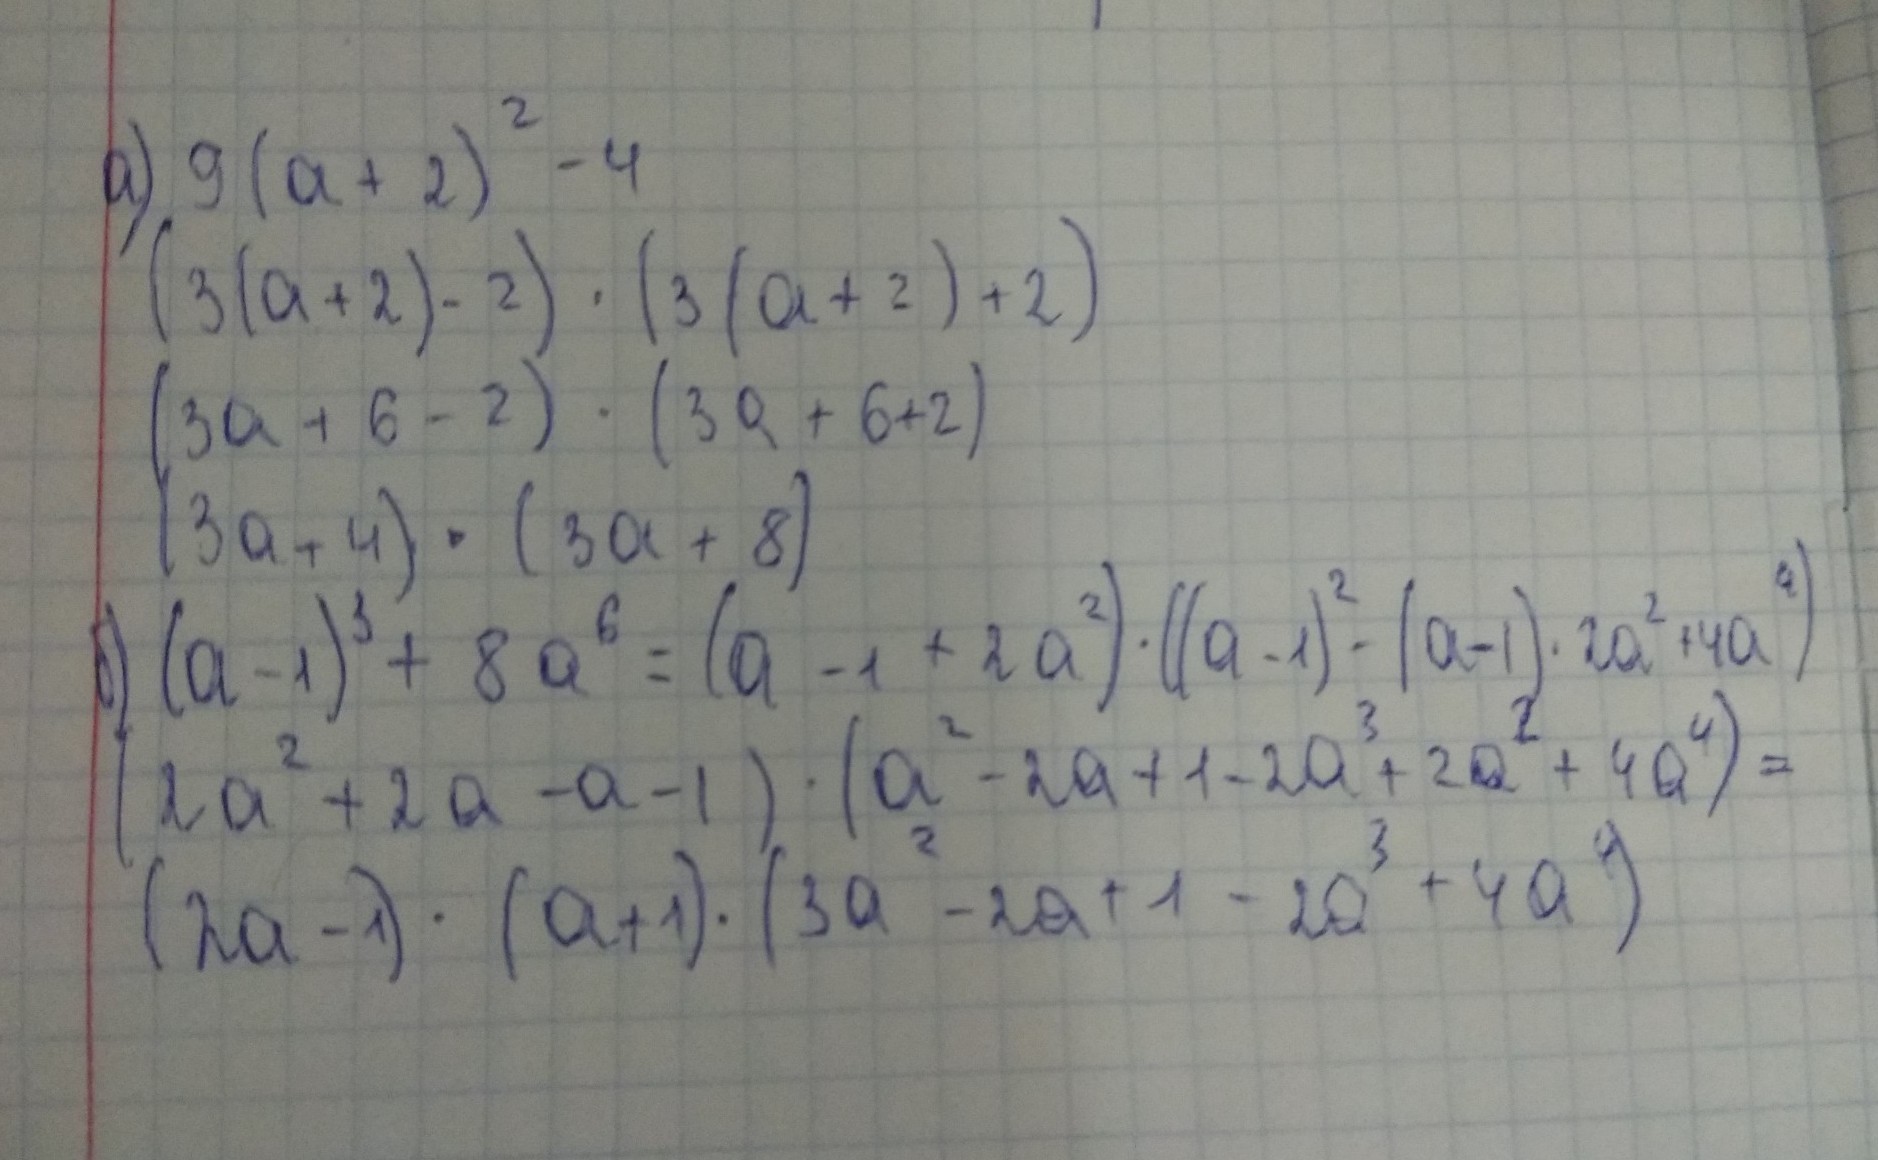 а) 9(a+2)² - 4
(3(a+2)-2)·(3(a+2)+2)
(3a+6-2)·(3a+6+2)
(3a+4)·(3a+8)
б) (a-1)³+8a⁶=(a-1+2a²)·((a-1)²-(a-1)·2a²+4a⁴)
(2a²+2a-a-1)·(a²-2a+1-2a³+2a²+4a⁴)=
(2a-1)·(a+1)·(3a²-2a+1-2a³+4a⁴)